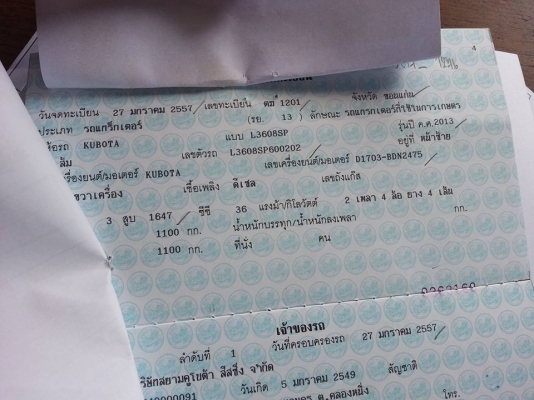 4
วันจดทะเบียน 27 มกราคม 2557 เลขทะเบียน ตม 1201 จังหวัด ขอนแก่น
ประเภท รถแทร็กเตอร์ (รย. 13) ลักษณะ รถแทรกเตอร์ที่ใช้ในการเกษตร
KUBOTA แบบ L3608SP รุ่นปี ค.ศ.2013
ส้ม เลขตัวรถ L3608SP600202 อยู่ที่ หน้าซ้าย
เครื่องยนต์/มอเตอร์ KUBOTA เลขเครื่องยนต์/มอเตอร์ D1703-BDN2475
ขวาเครื่อง เชื้อเพลิง ดีเซล เลขถังแก๊ส
3 สูบ 1647 ซีซี 36 แรงม้า/กิโลวัตต์ 2 เพลา 4 ล้อ ยาง 4 เส้น
1100 กก. น้ำหนักบรรทุก/น้ำหนักลงเพลา กก.
1100 กก. ที่นั่ง คน
เจ้าของรถ
ลำดับที่ 1 วันที่ครอบครองรถ 27 มกราคม 2557
บริษัทสยามคูโบต้า ลีสซิ่ง จำกัด
วันเกิด 5 มกราคม 2549 สัญชาติ
ต.คลองหนึ่ง โทร.